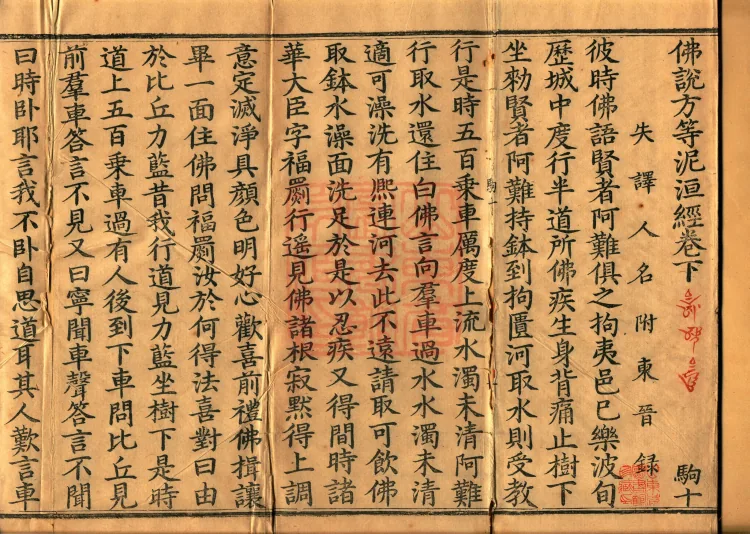 佛說方等泥洹經卷下
駒十
失譯人名附東晉錄
彼時佛語賢者阿難俱之拘夷邑已樂波旬
歷城中度行半道所佛疾生身背痛止樹下
坐勑賢者阿難持鉢到拘匱河取水則受教
行是時五百乘車厲度上流水濁未清阿難
行取水還住白佛言向羣車過水水濁未清
適可澡洗有熈連河去此不遠請取可飲佛
取鉢水澡面洗足於是以忍疾又得間時諸
華大臣字福罽行遙見佛諸根寂黙得上調
意定滅淨具顏色明好心歡喜前禮佛揖讓
畢一面住佛問福罽汝於何得法喜對曰由
於比丘力藍昔我行道見力藍坐樹下是時
道上五百乘車過有人後到下車問比丘見
前羣車答言不見又曰寧聞車聲答言不聞
曰時卧耶言我不卧自思道耳其人歎言車
駒十